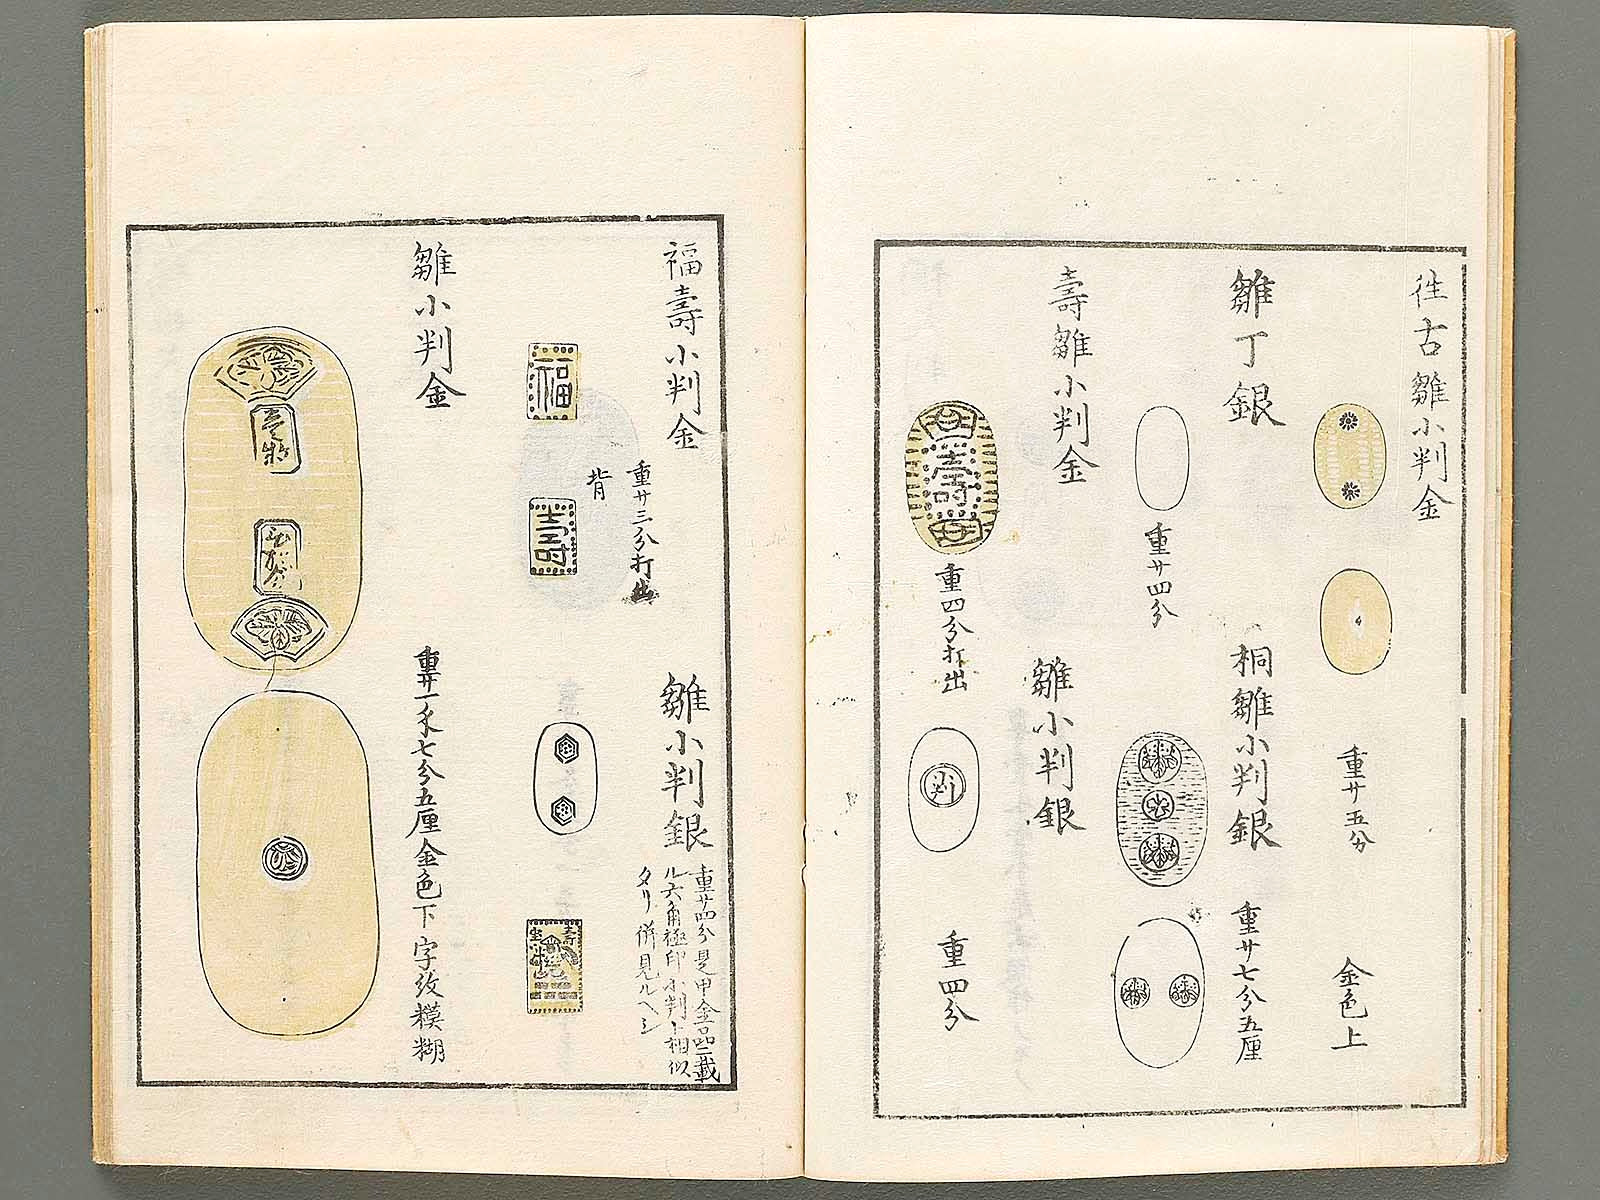 往古雛小判金
重廿五分
金色上
雛丁銀
重廿四分
桐雛小判銀
重廿七分五厘
壽雛小判金
壽
重四分打出
雛小判銀
判
重四分
福壽小判金
重廿三分打出
背
福
壽
雛小判銀
重廿四分是甲金品ニ載
ル六角極印小判ト相似
タリ併見ルヘシ
壽
雛小判金
重廿一匁七分五厘金色下字紋糢糊